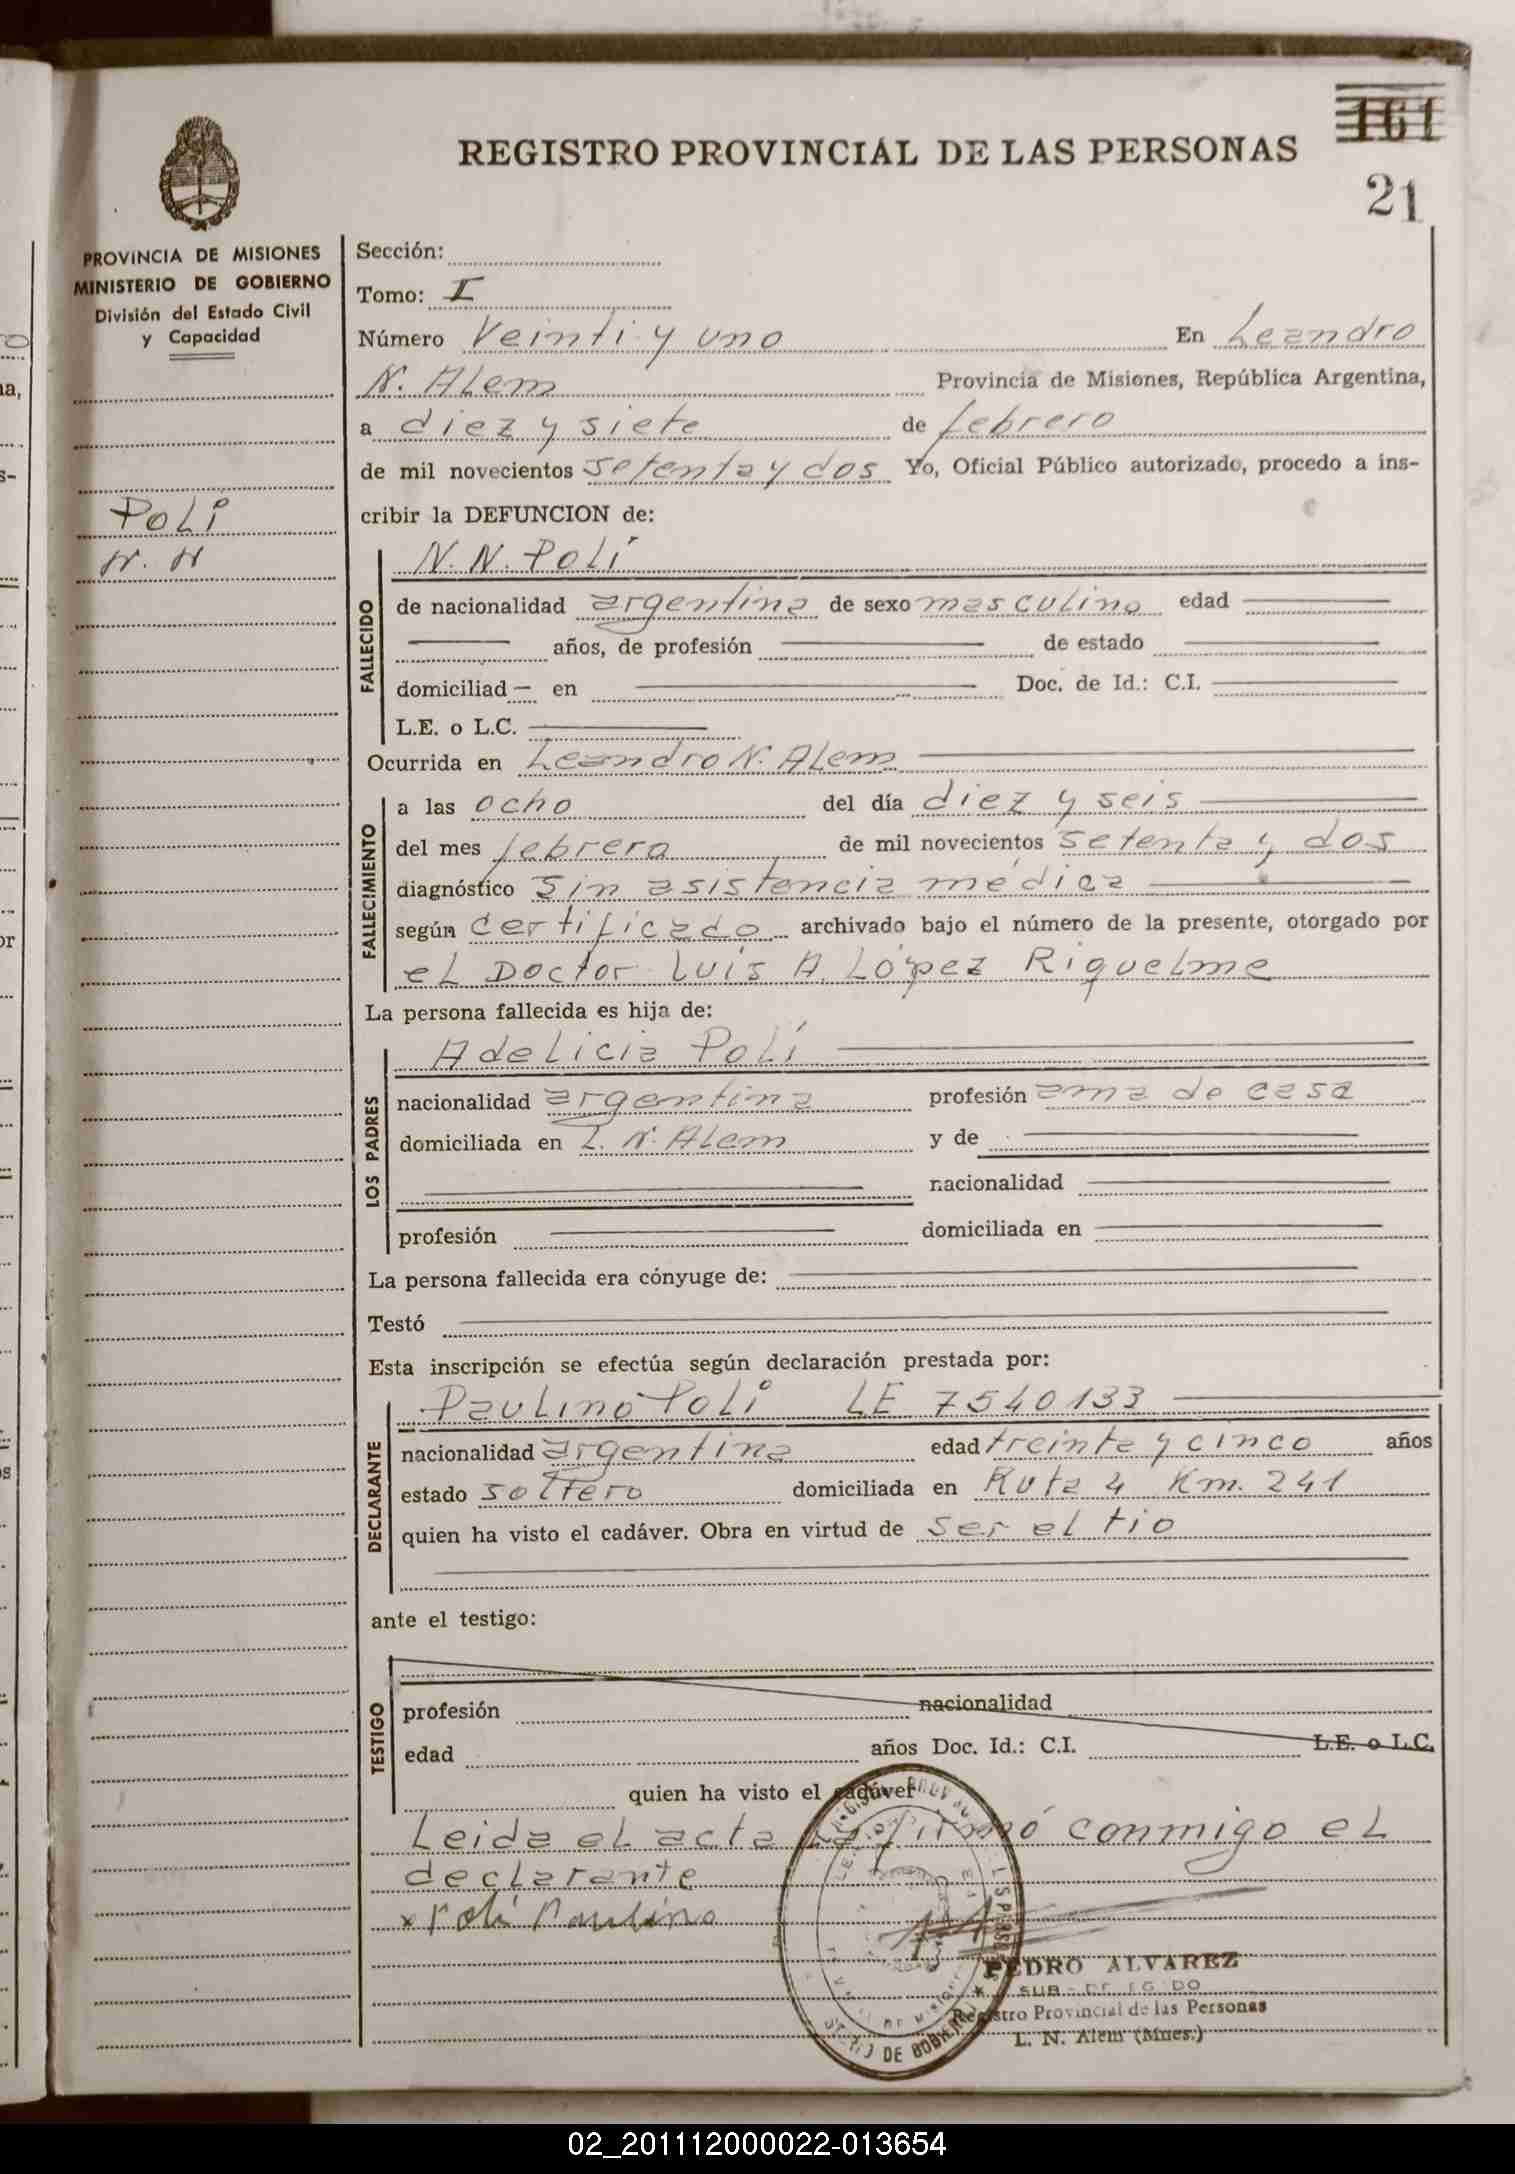 161
REGISTRO PROVINCIAL DE LAS PERSONAS
21
PROVINCIA DE MISIONES
MINISTERIO DE GOBIERNO
División del Estado Civil
y Capacidad
POLI
N. N
Sección:
Tomo: I
Número Veinti y uno En Leandro
N. ALem Provincia de Misiones, República Argentina,
a diez y siete de febrero
de mil novecientos setenta y dos Yo, Oficial Público autorizado, procedo a ins-
cribir la DEFUNCION de:
FALLECIDO
N. N. Poli
de nacionalidad argentina de sexo masculino edad
años, de profesión de estado
domiciliad en Doc. de Id.: C.I.
L.E. o L.C.
Ocurrida en Leandro N. ALem
FALLECIMIENTO
a las ocho del día diez y seis
del mes febrero de mil novecientos setenta y dos
diagnóstico sin asistencia médica
según certificado archivado bajo el número de la presente, otorgado por
eL Doctor Luis A. López Riquelme
La persona fallecida es hija de:
LOS PADRES
Adelicia Poli
nacionalidad argentina profesión ama de casa
domiciliada en L. N. ALem y de
nacionalidad
profesión domiciliada en
La persona fallecida era cónyuge de:
Testó
Esta inscripción se efectúa según declaración prestada por:
DECLARANTE
Paulino Poli LE 7540133
nacionalidad argentina edad treinta y cinco años
estado soltero domiciliada en Ruta 4 Km. 241
quien ha visto el cadáver. Obra en virtud de ser el tio
ante el testigo:
TESTIGO
profesión nacionalidad
edad años Doc. Id.: C.I. L.E. o L.C.
quien ha visto el cadáver
Leida eL acta la firmó conmigo eL
declarante
x Poli Paulino
DE GOBIERNO
PEDRO ALVAREZ
SUB-DELEGADO
Registro Provincial de las Personas
L. N. Alem (Mnes.)
02_201112000022-013654